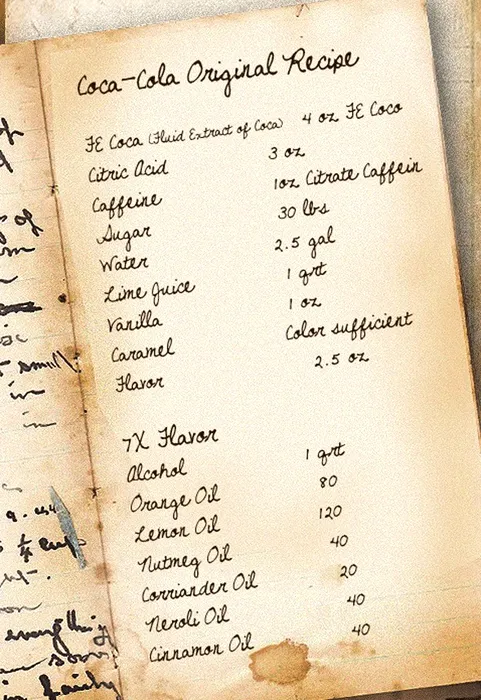 Coca-Cola Original Recipe
FE Coca (Fluid Extract of Coca) 4 oz FE Coco
Citric Acid 3 oz
Caffeine 1oz Citrate Caffein
Sugar 30 lbs
Water 2.5 gal
Lime Juice 1 qrt
Vanilla 1 oz
Caramel Color sufficient
Flavor 2.5 oz
7X Flavor
Alcohol 1 qrt
Orange Oil 80
Lemon Oil 120
Nutmeg Oil 40
Corriander Oil 20
Neroli Oil 40
Cinnamon Oil 40
of
of
small
in
in
everything
soon